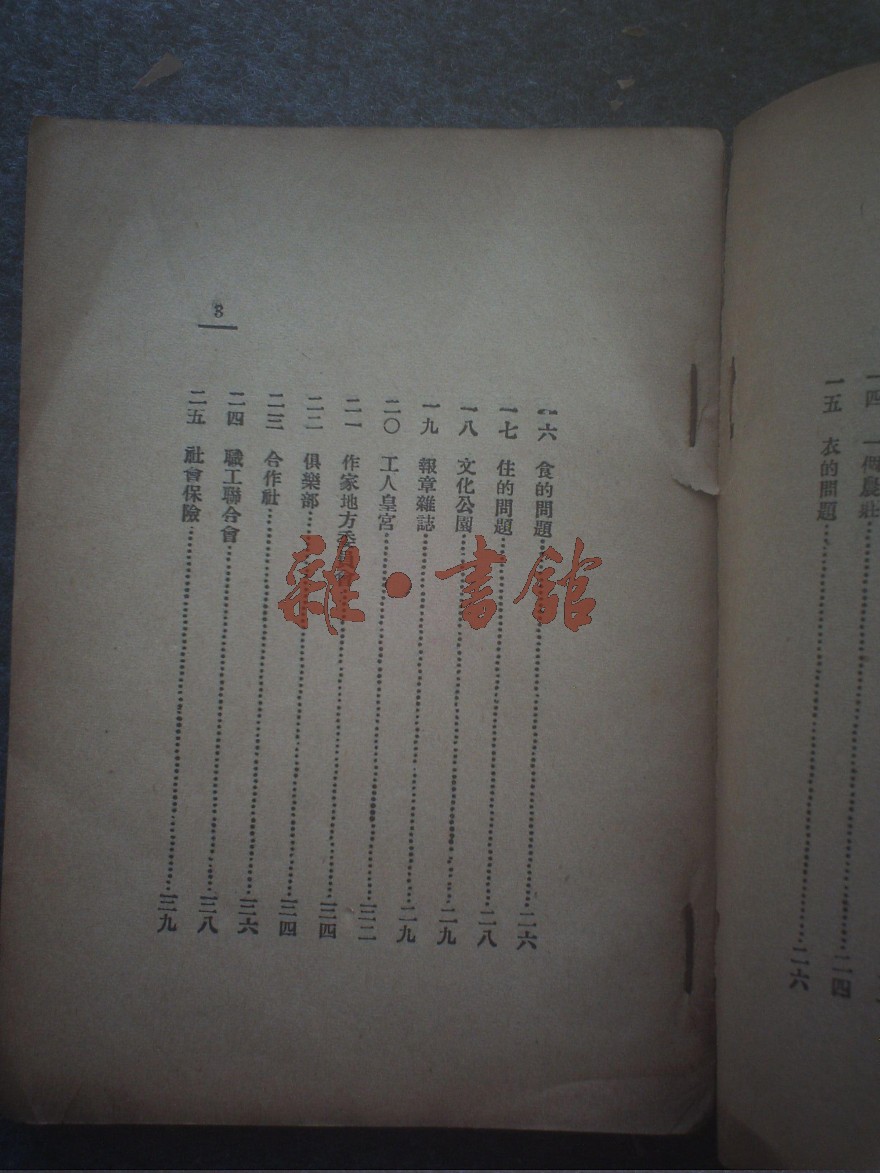 一四
一五 衣的問題……二六
二四
8
一六 食的問題……二六
一七 住的問題……二八
一八 文化公園……二九
一九 報章雜誌……二九
二〇 工人皇宮……三二
二一 作家地方……三四
二二 俱樂部……三四
二三 合作社……三六
二四 職工聯合會……三八
二五 社會保險……三九
雜·書館